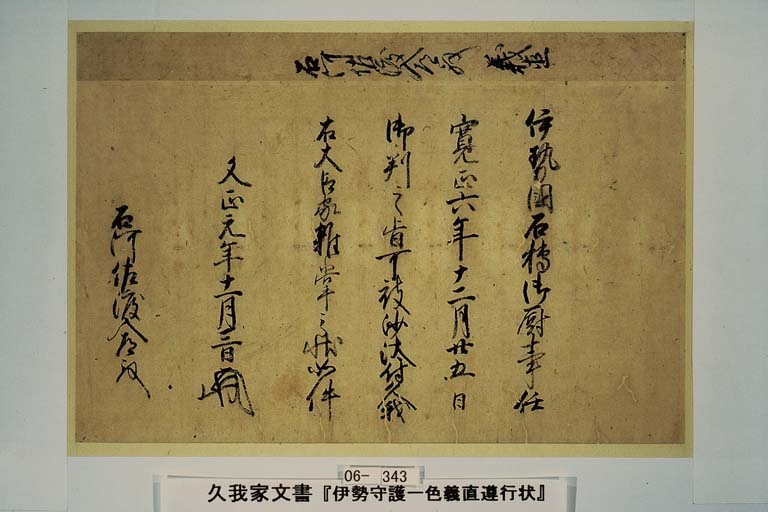 石河佐渡入道殿 義直
伊勢國石榑御厨事任
寛正六年十二月廿五日
御判之旨可被沙汰付久我
右大臣家雑掌之状如件
文正元年十一月三日
石河佐渡入道殿
06- 343
久我家文書『伊勢守護一色義直遵行状』